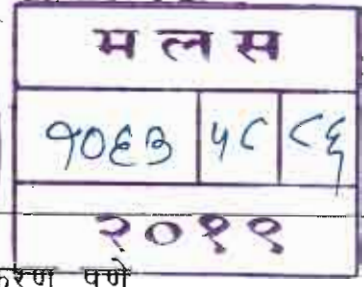 म ल स
१०६३ ५८ ८६
२०१९
करण पुणे